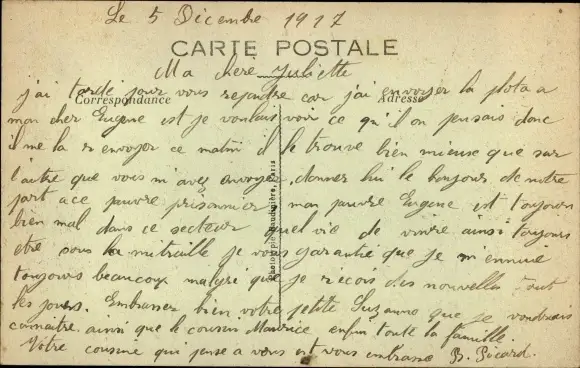 Le 5 Décembre 1917
CARTE POSTALE
Ma chère Juliette
Correspondance
Adresse
j'ai tardé pour vous rejondre car j'ai envoyer la photo a
mon cher Eugene est je voulais voir ce qu'il on pensais donc
il me la renvoyer ce matin il le trouve bien mieuse que sur
l'autre que vous m'avez envoyer. donner lui le bonjour de notre
part a ce pauvre prisonnier mon pauvre Eugene est toujours
bien mal dans ce secteur quel vie de vivre ainsi toujours
etre sous la mitraille je vous garantie que je m'ennuie
toujours beaucoup malgré que je reçois des nouvelles tout
les jours. Embrasser bien votre petite Suzanne que je voudrais
connaitre ainsi que le cousin Maurice enfin toute la famille.
Votre cousine qui pense a vous est vous embrasse B. Picard.